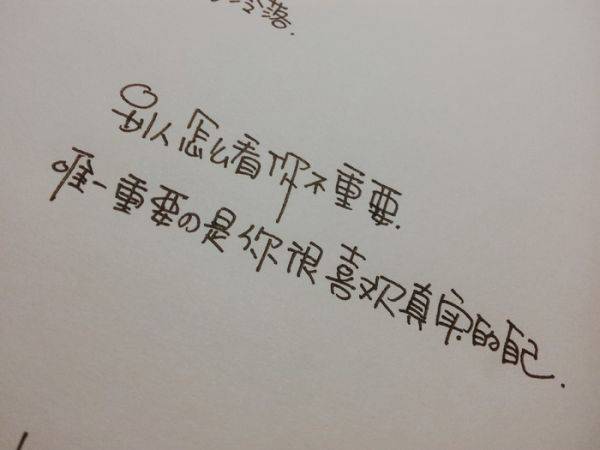 冷落.
别人怎么看你不重要.
唯一重要の是你很喜欢真实的自己.